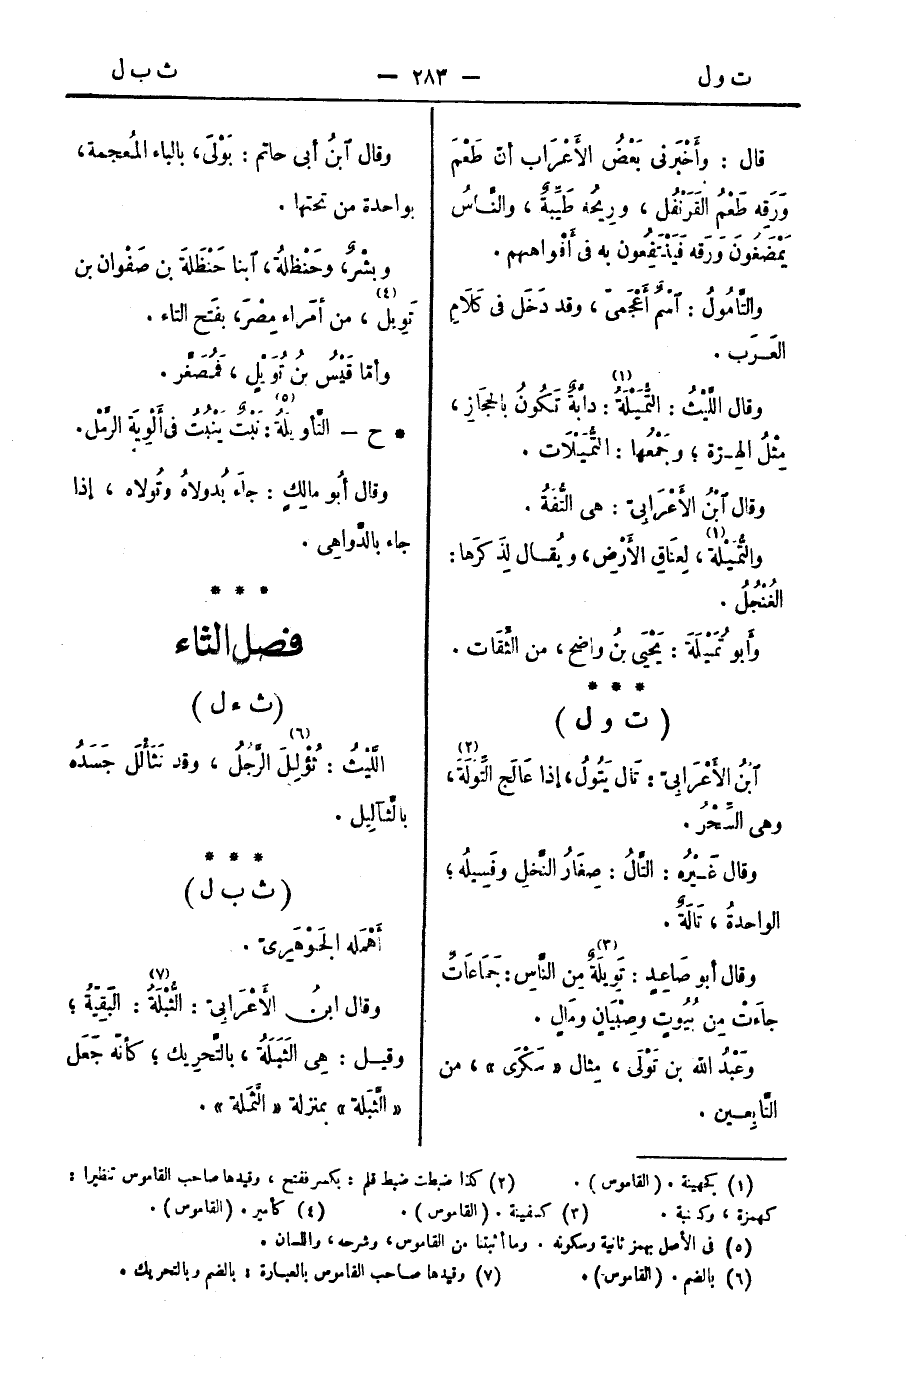 ت ول
— ٢٨٣ —
ث ب ل
قال : وأَخْبَرنى بَعْضُ الأَعْرَاب أنّ طَعْمَ
وَرَقِه طَعْمُ القَرَنْفُل ، ورِيحُه طَيِّبَةٌ ، والنَّاسُ
يَمْضَغُونَ وَرَقه فَيَنْتَفِعُون به فى أَفْواهِهم .
والتَّامُولُ : ٱسْمٌ أَعْجَمىّ ، وقد دَخَل فى كَلَامِ
العَـرَب .
وقال اللَّيْثُ : التُّمَيْلَةُ (١) : دابَّةٌ تَكُونُ بالحِجَازِ ،
مِثْلُ الهـِرّة ؛ وجَمْعُها : التُّمَيْلَات .
وقال ٱبْنُ الأَعْرَابِىّ : هى التُّفَةُ .
والتُّمَيْلَة (١) ، لِعنَاق الأَرْض ، ويُقـال لِذَكَرَها :
الغُنْجُلُ .
وأَبو تُمَيْلَةَ : يَحْيَى بنُ واضِح ، من الثِّقَات .
* * *
( ت ول )
ٱبنُ الأَعْرَابِىّ : تَال يَتُولُ ، إذا عَالَج التِّوَلَةَ (٢) ،
وهى السِّحْرُ .
وقال غَـيْرُه : التَّالُ : صِغَارُ النَّخلِ وفَسِيلُه ؛
الواحدةُ ، تَالَةٌ .
وقال أبو صَاعِدٍ : تَوِيلَةٌ (٣) مِن النَّاسِ : جَمَاعَاتٌ
جاءَتْ مِن بُيُوتٍ وصِبْيَانٍ ومَالٍ .
وعَبْدُ اللّه بن تَوْلَى ، مِثال « سَكْرَى » ، من
التَّابِعـين .
وقال ٱبنُ أبى حاتم : بَوْلَى ، بالباء المُعجمة ،
بواحدة من تحتها .
وبِشْرٌ ، وحَنْظلةُ ، ٱبنا حَنْظَلَة بن صَفْوان بن
تَوِيل (٤) ، من أمَراء مِصْرَ ، بفَتح التاء .
وأمّا قَيْسُ بنُ تُوَيْلٍ ، فمُصَغَّر .
* ح — التَّأوِيلَةُ (٥) : نَبْتٌ يَنْبُتُ فى أَلْوِيَة الرَّمْل .
وقال أبُو مالكٍ : جاءَ بُدولاهُ وتُولاه ، إذا
جاء بالدَّواهِى .
* * *
فصل الثاء
( ث ءل )
اللَّيْثُ : ثُؤْلِلَ (٦) الرَّجُلُ ، وقد تَثَأْلَل جَسَدُه
بالثَّآلِيل .
* * *
( ث ب ل )
أَهْمَله الجَـوْهَرِىّ .
وقال ابنُ الأَعْرَابِىّ : الثُّبْلَةُ (٧) : البَقِيَّةُ ؛
وقيـل : هِى الثَبَلَةُ ، بالتَّحْرِيك ؛ كأنّه جَعَل
« الثَّبَلة » بمنزلة « الثَّمَلة » .
(١) كجهينة . (القاموس ) . (٢) كذا ضبطت ضبط قلم : بكسر ففتح ، وقيدها صاحب القاموس تنظيرا :
كهمزة ، وكعنبة . (٣) كسفينة . (القاموس ) . (٤) كأمير . (القاموس ) .
(٥) فى الأصل بهمز ثانية وسكونه . وما أثبتنا من القاموس ، وشرحه ، واللسان .
(٦) بالضم . (القاموس) . (٧) وقيدها صاحب القاموس بالعبارة : بالضم وبالتحريك .